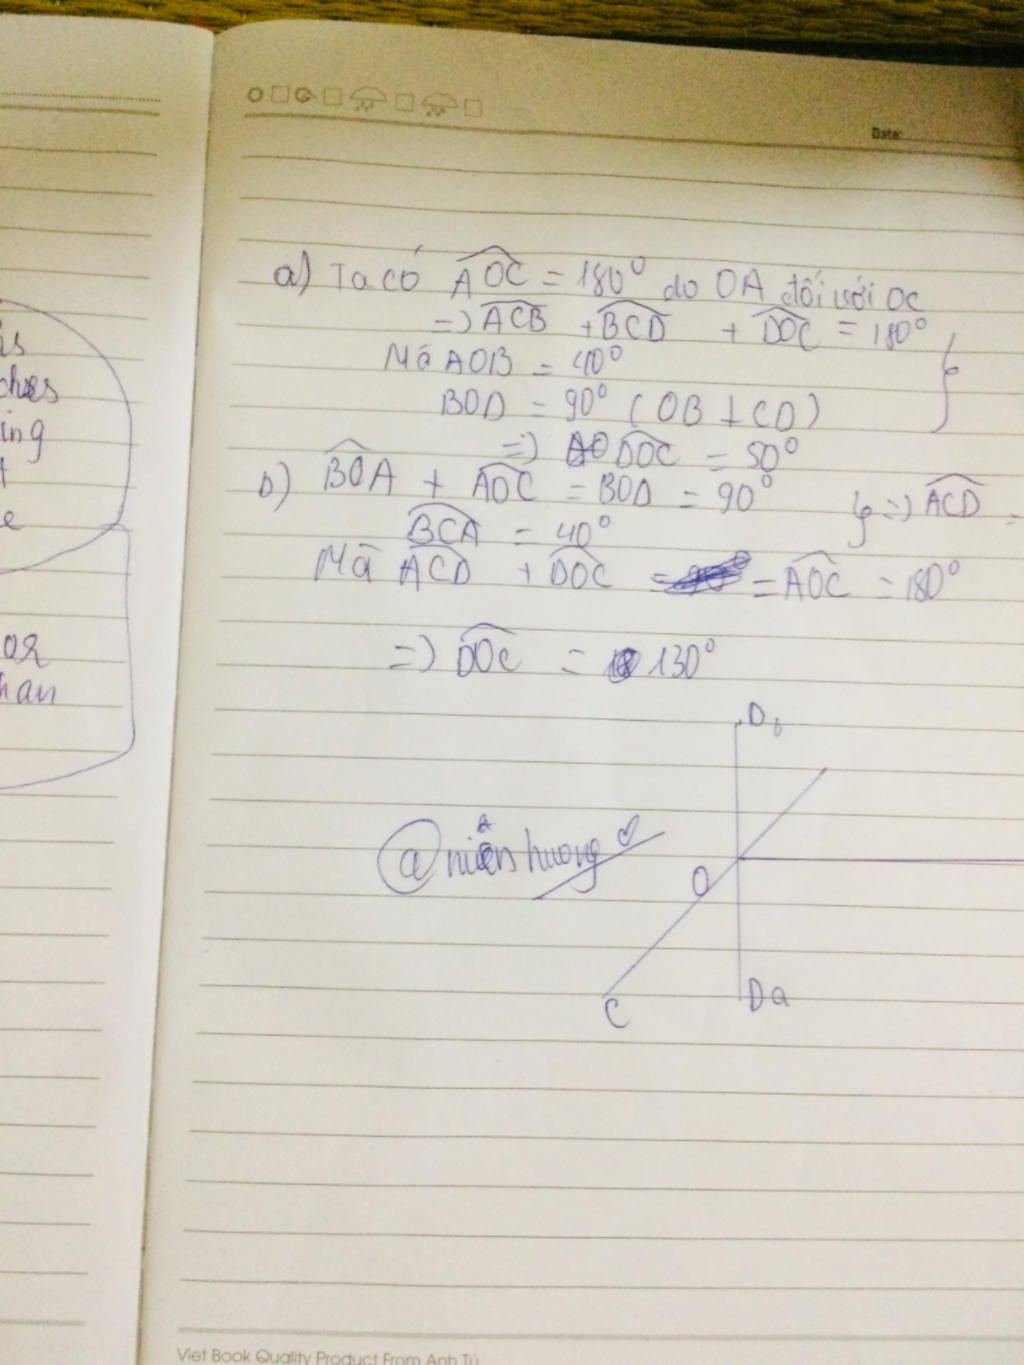 is
ches
ing
t
e
or
han
Date:
a) Ta có AOC = 180° do OA đối với OC
=> ACB + BCD + DOC = 180°
Mà AOB = 40°
BOD = 90° (OB ⊥ CD)
=> DOC = 50°
b) BOA + AOC = BOD = 90°
=> ACD =
BCA = 40°
Mà ACD + DOC = = AOC = 180°
=> DOC = 130°
D b
O
C
D a
Viet Book Quality Product From Anh Tú